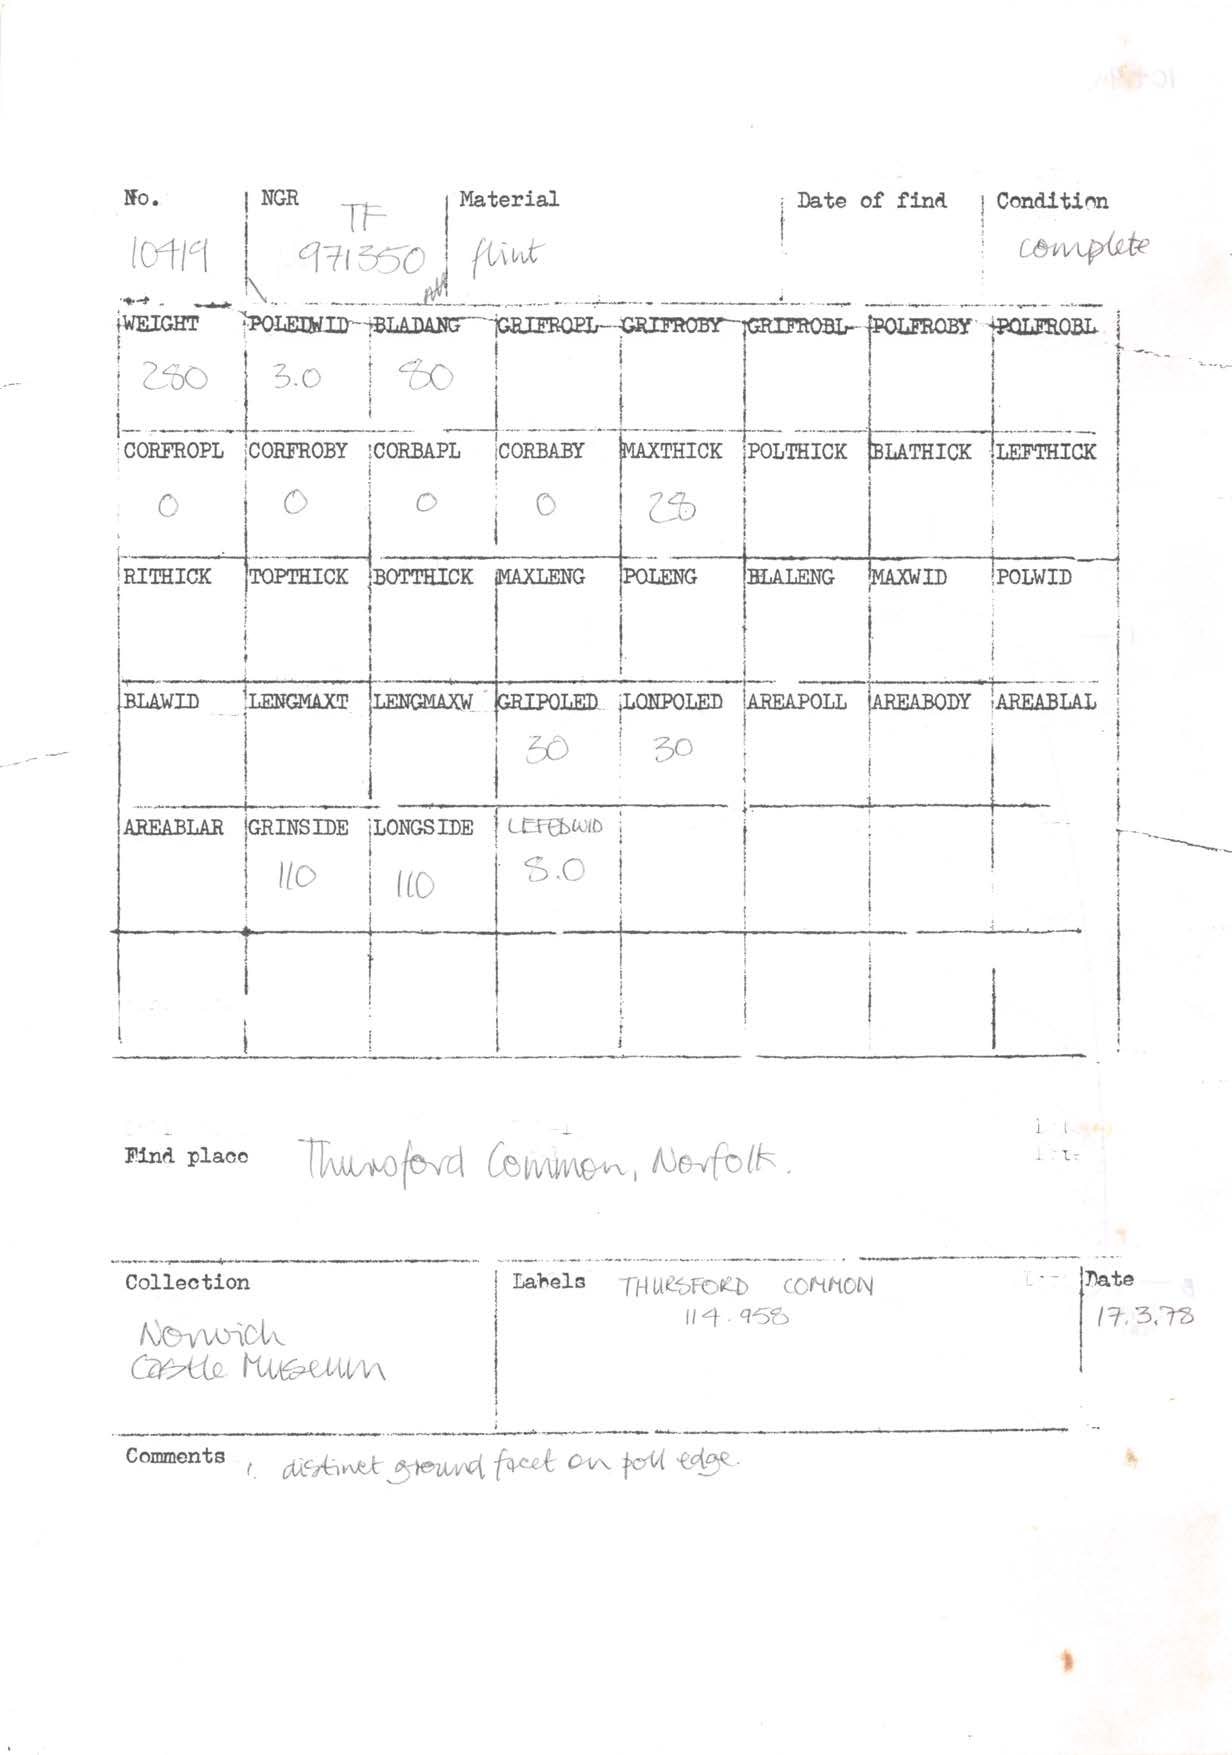 No. NGR TF Material Date of find Condition
10419 971350 flint complete
WEIGHT POLEDWID BLADANG GRIFROPL GRIFROBY GRIFROBL POLFROBY POLFROBL
280 3.0 80
CORFROPL CORFROBY CORBAPL CORBABY MAXTHICK POLTHICK BLATHICK LEFTHICK
0 0 0 0 28
RITHICK TOPTHICK BOTTHICK MAXLENG POLENG BLALENG MAXWID POLWID
BLAWID LENGMAXT LENGMAXW GRIPOLED LONPOLED AREAPOLL AREABODY AREABLAL
30 30
AREABLAR GRINSIDE LONGSIDE LEFEDWID
110 110 8.0
Find place Thursford Common, Norfolk.
Collection Labels THURSFORD COMMON Date
114.958 17.3.78
Norwich
Castle Museum
Comments 1. distinct ground facet on poll edge.